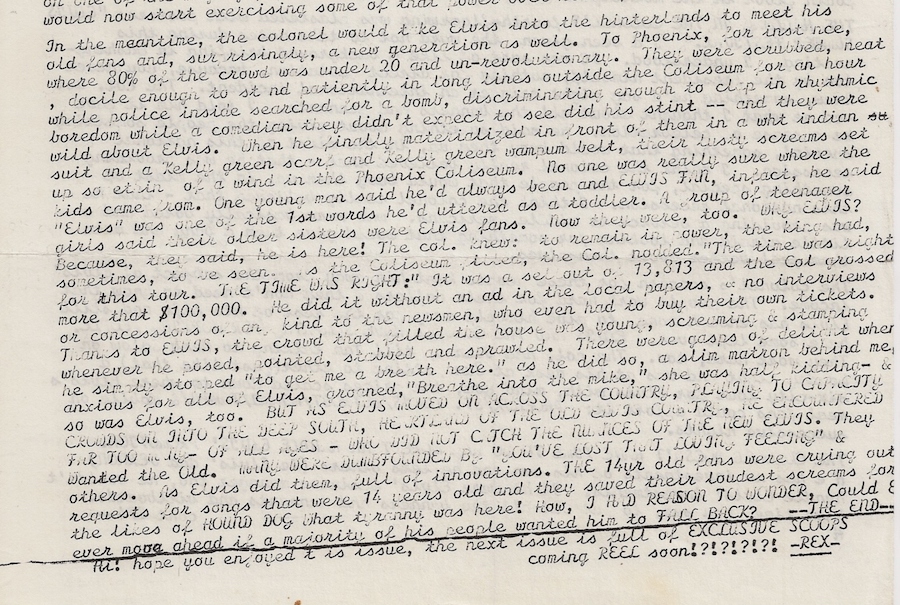 would now start exercising some of that power
In the meantime, the colonel would t ke Elvis into the hinterlands to meet his
old fans and, sur risingly, a new generation as well. To Phoenix, for inst nce,
where 80% of the crowd was under 20 and un-revolutionary. They were scrubbed, neat
, docile enough to st nd patiently in long lines outside the Coliseum for an hour
while police inside searched for a bomb, discriminating enough to clap in rhythmic
boredom while a comedian they didn't expect to see did his stint -- and they were
wild about Elvis. When he finally materialized in front of them in a wht indian su
suit and a Kelly green scarf and Kelly green wampum belt, their lusty screams set
up so of a wind in the Phoenix Coliseum. No one was really sure where the
kids came from. One young man said he'd always been and ELVIS FAN, infact, he said
"Elvis" was one of the 1st words he'd uttered as a toddler. A group of teenager
girls said their older sisters were Elvis fans. Now they were, too. Why ELVIS?
Because, they said, he is here! The col. knew: to remain in power, the king had,
sometimes, to be seen. As the Coliseum filled, the Col. nodded."The time was right
for this tour. THE TIME WAS RIGHT:" It was a sel out of 13,813 and the Col grossed
more that $100,000. He did it without an ad in the local papers, & no interviews
or concessions of an kind to the newsmen, who even had to buy their own tickets.
Thanks to ELVIS, the crowd that filled the house was young, screaming & stamping
whenever he posed, pointed, stabbed and sprawled. There were gasps of delight when
he simply stopped "to get me a breath here." as he did so, a slim matron behind me,
anxious for all of Elvis, groaned,"Breathe into the mike," she was half kidding- &
so was Elvis, too. BUT AS ELVIS MOVED ON ACROSS THE COUNTRY, PLAYING TO CAPACITY
CROWDS ON INTO THE DEEP SOUTH, HEARTLAND OF THE OLD ELVIS COUNTRY, HE ENCOUNTERED
FAR TOO MANY- OF ALL AGES - WHO DID NOT CATCH THE NUANCES OF THE NEW ELVIS. They
Wanted the Old. MANY WERE DUMBFOUNDED By "yOU'VE LOST THAT LOVING FEELING" &
others. As Elvis did them, full of innovations. THE 14yr old fans were crying out
requests for songs that were 14 years old and they saved their loudest screams for
the likes of HOUND DOG What tyranny was here! How, I HAD REASON TO WONDER, Could E
ever move ahead if a majority of his people wanted him to FALL BACK? --THE END--
Hi! hope you enjoyed t is issue, the next issue is full of EXCLUSIVE SCOOPS
coming REEL soon!?!?!?!?! -REX-